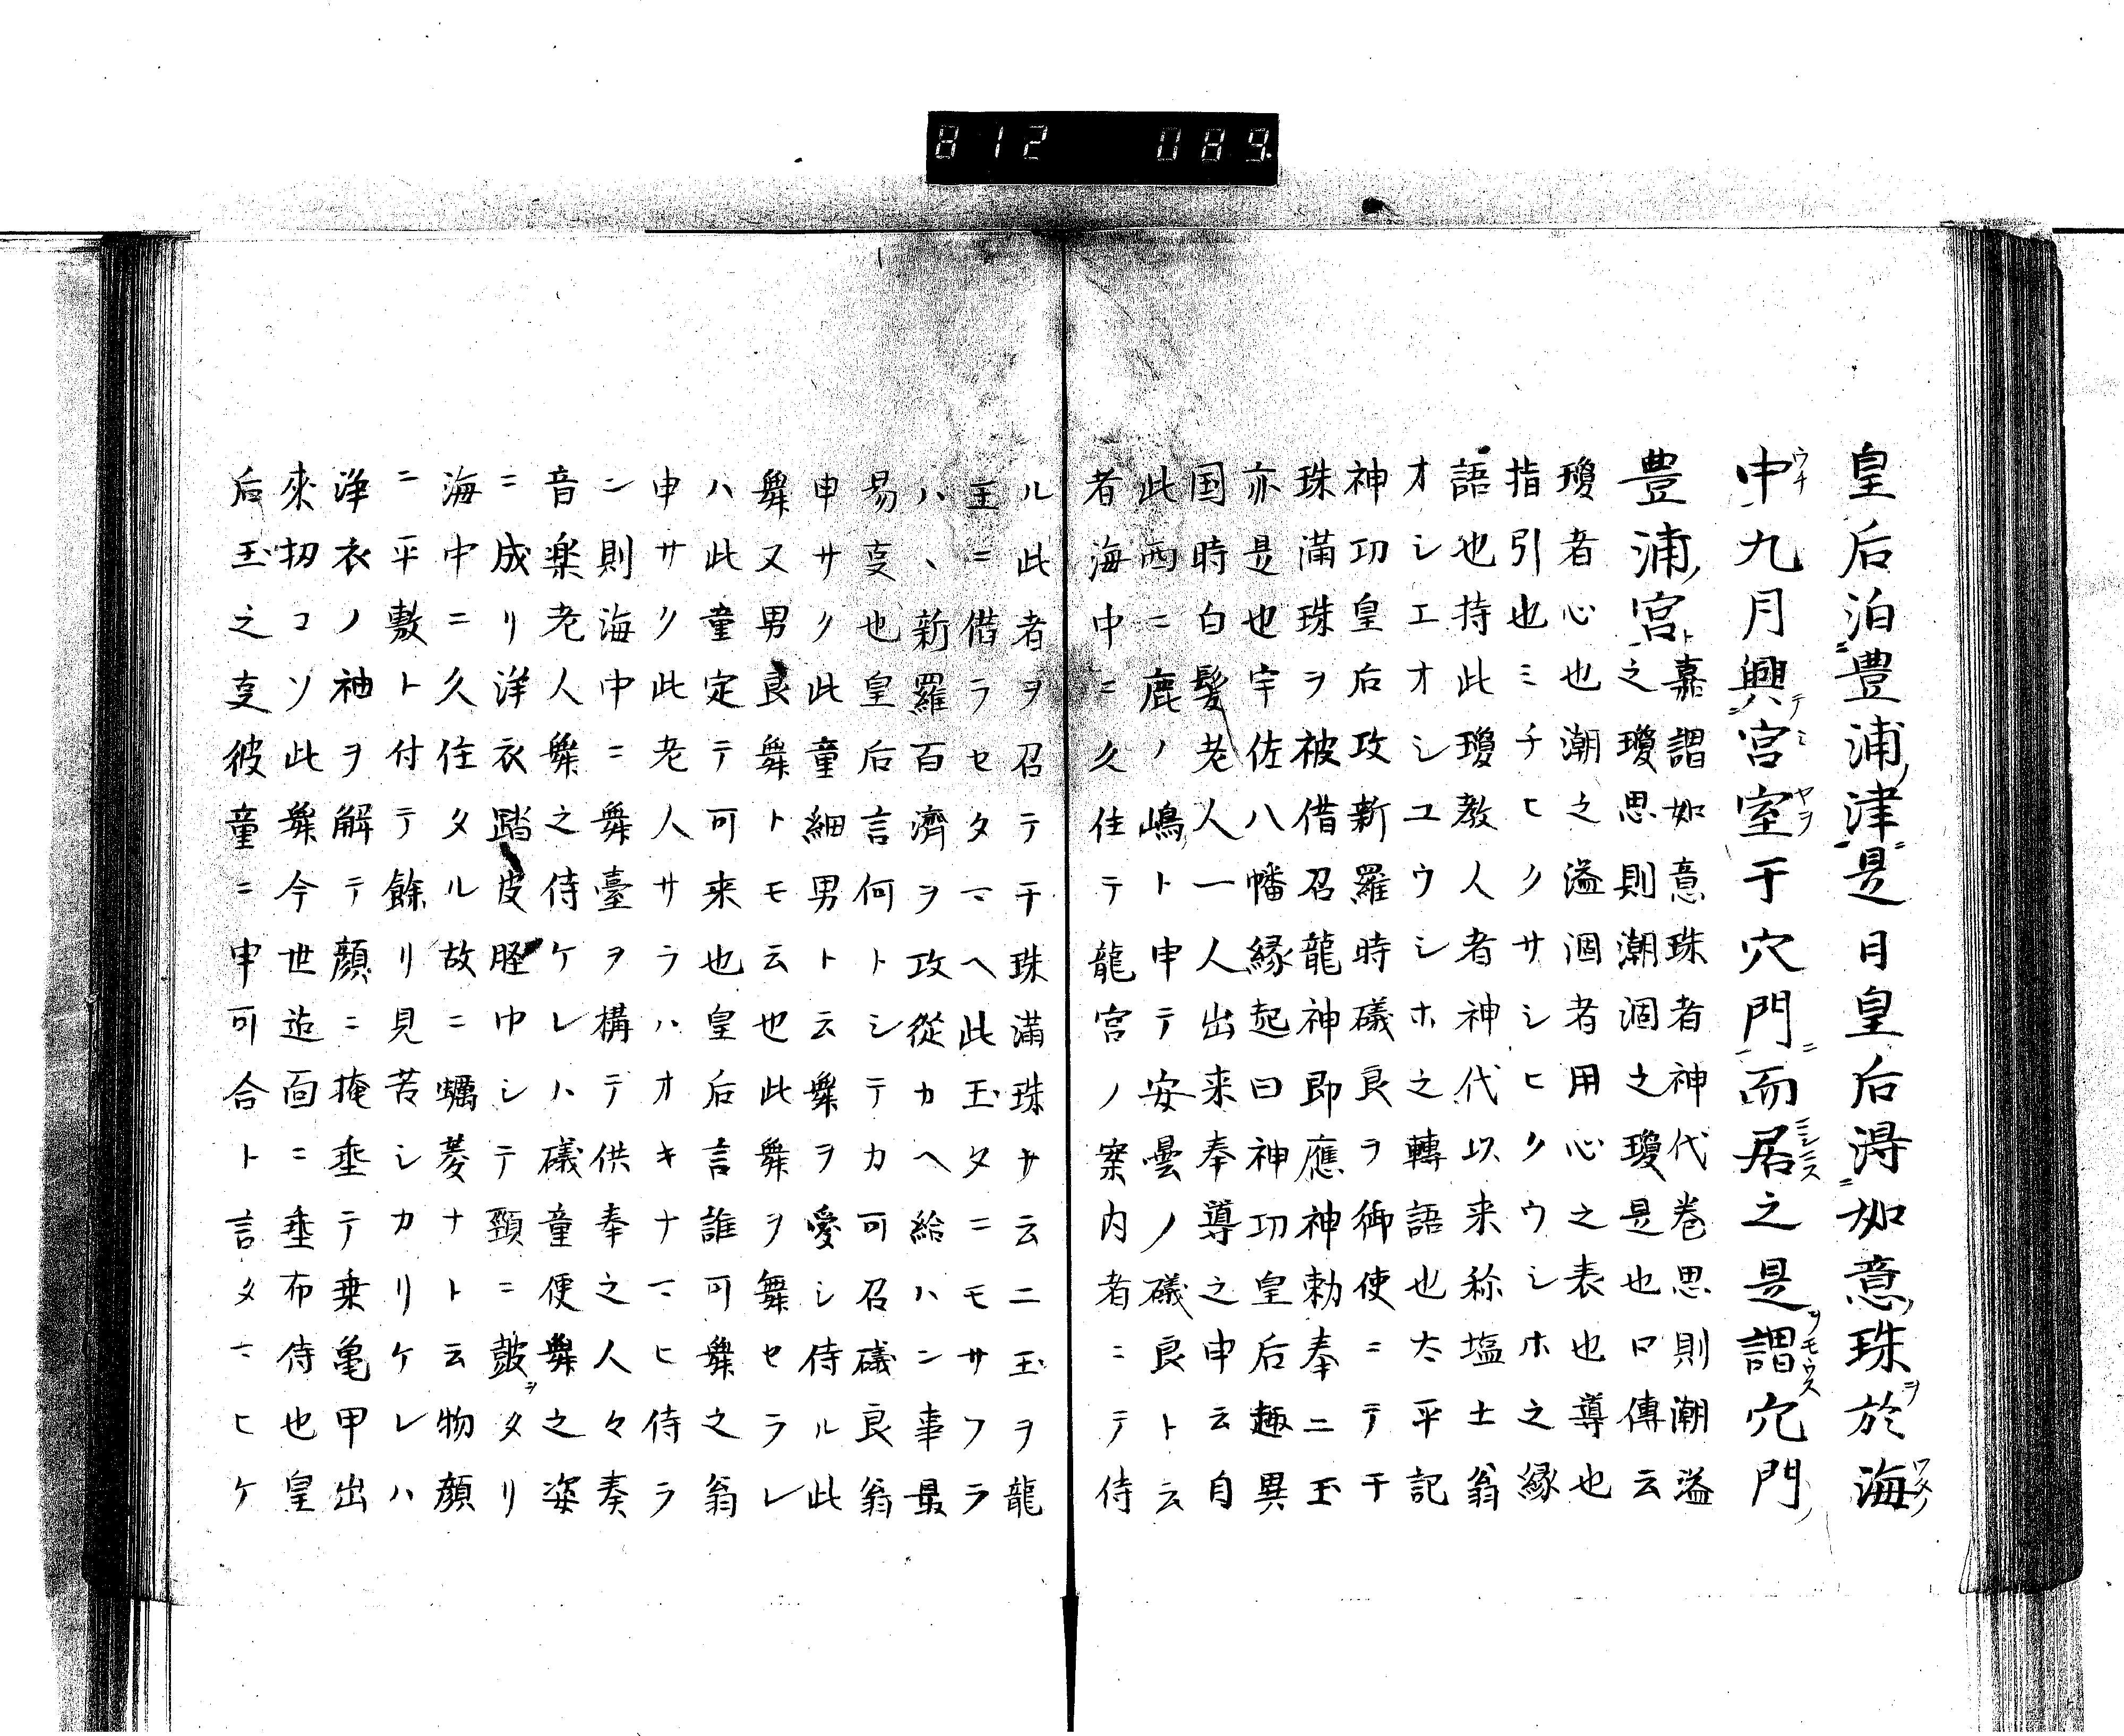 812 089.
皇后泊豊浦津是日皇后淂如意珠於海
中九月興宮室于穴門而居之是謂穴門
豊浦宮
嘉謂如意珠者神代巻思則潮溢
之瓊思則潮涸之瓊是也口傳云
瓊者心也潮之溢涸者用心之表也導也
指引也ミチヒクサシヒクウシホ之縁
語也持此瓊教人者神代以来称塩土翁
オシエオシユウシホ之轉語也太平記
神功皇后攻新羅時礒良ヲ御使ニテ干
珠滿珠ヲ被借召龍神即應神勅奉二玉
亦是也宇佐八幡縁起曰神功皇后趣異
国時白髪老人一人出来奉導之申云自
此西ニ鹿ノ嶋ト申テ安曇ノ礒良ト云
者海中ニ久住テ龍宮ノ案内者ニテ侍
ル此者ヲ召テ干珠滿珠サ云二玉ヲ龍
王ニ借ラセタマヘ此玉タニモサフラ
ハヽ新羅百濟ヲ攻從カヘ給ハン事最
易支也皇后言何トシテカ可召礒良翁
申サク此童細男ト云舞ヲ愛シ侍ル此
舞又男良舞トモ云也此舞ヲ舞セラレ
ハ此童定テ可来也皇后言誰可舞之翁
申サク此老人サラハオキナマヒ侍ラ
ン則海中ニ舞臺ヲ構テ供奉之人々奏
音楽老人舞之侍ケレハ礒童便舞之姿
ニ成リ浄衣踏皮脛巾シテ頸ニ皷ヲタリ
海中ニ久住タル故ニ蠣菱ナト云物顔
ニ平敷ト付テ餘リ見苦シカリケレハ
浄衣ノ袖ヲ解テ顔ニ掩垂テ乗亀甲出
來刼コソ此舞今世造面ニ垂布侍也皇
后玉之支彼童ニ申可合ト言タマヒケ